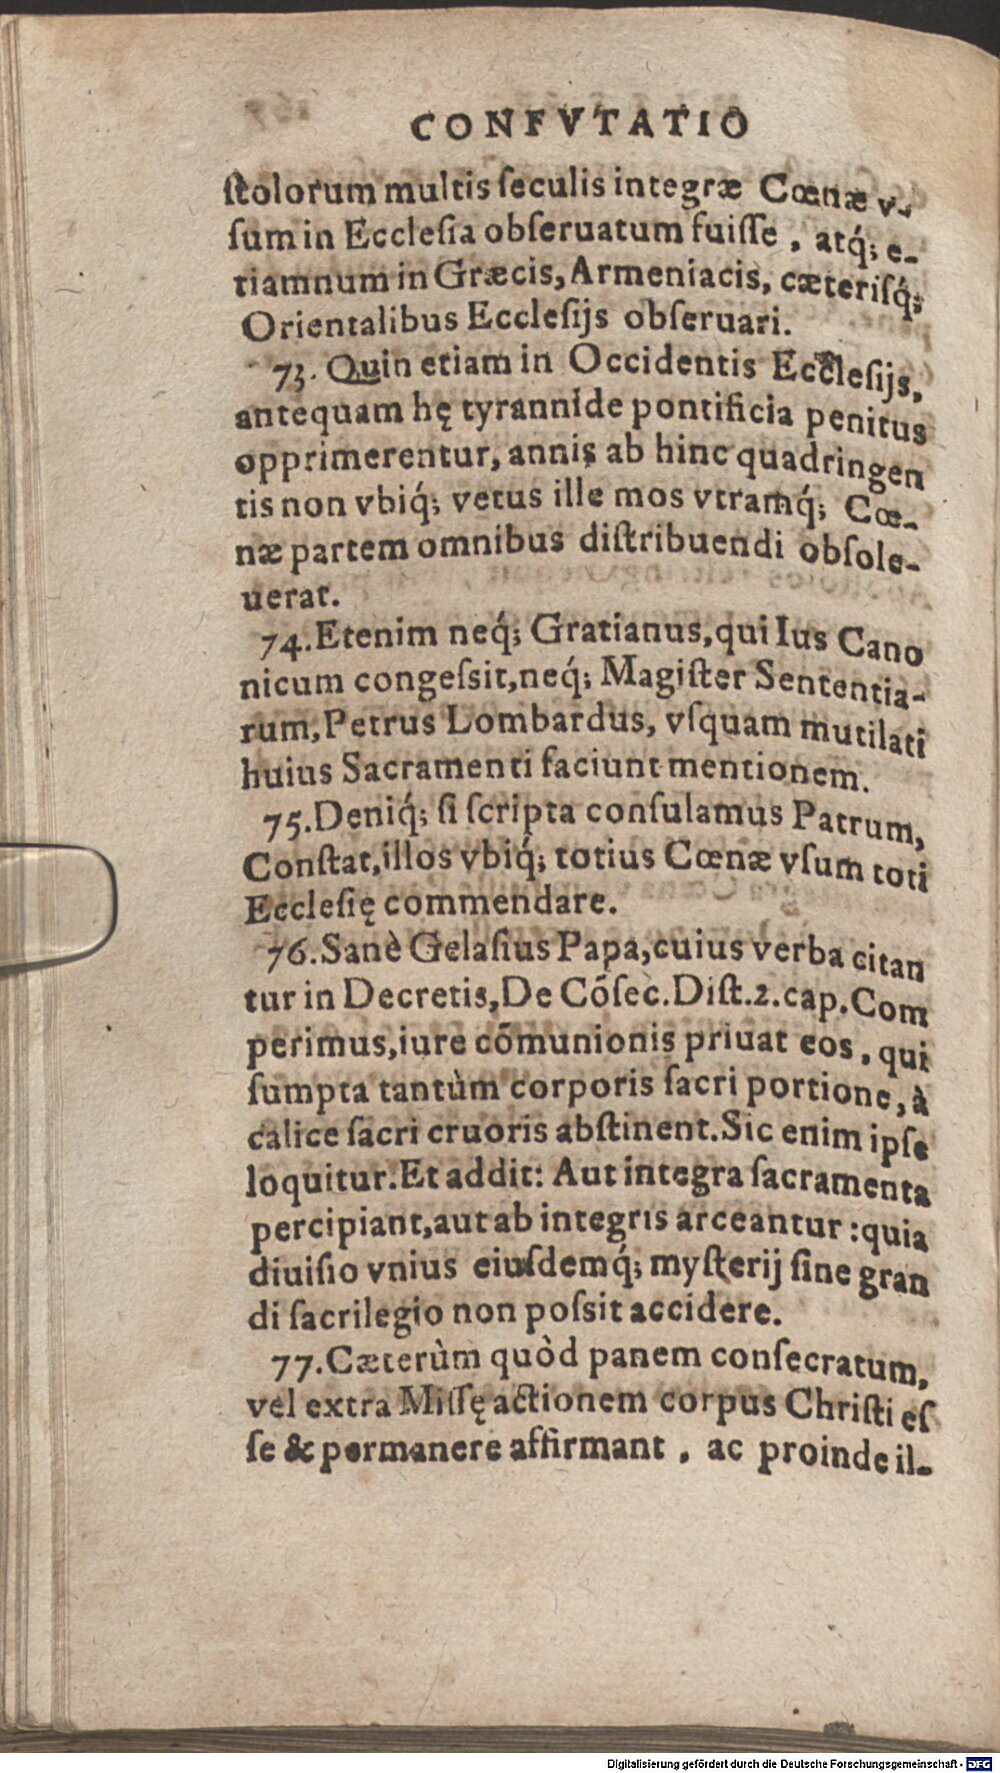 CONFVTATIO
ſtolorum multis ſeculis integræ Cœnæ v-
ſum in Eccleſia obſeruatum fuiſſe, atq́; e-
tiamnum in Græcis, Armeniacis, cæteriſq́;
Orientalibus Eccleſijs obſeruari.
73. Quin etiam in Occidentis Eccleſijs,
antequam hę tyrannide pontificia penitus
opprimerentur, annis ab hinc quadringen
tis non vbiq́; vetus ille mos vtramq́; Cœ-
næ partem omnibus diſtribuendi obſole-
uerat.
74. Etenim neq́; Gratianus, qui Ius Cano
nicum congeſsit, neq́; Magiſter Sententia-
rum, Petrus Lombardus, vſquam mutilati
huius Sacramenti faciunt mentionem.
75. Deniq́; ſi ſcripta conſulamus Patrum,
Conſtat, illos vbiq́; totius Cœnæ vſum toti
Eccleſię commendare.
76. Sanè Gelaſius Papa, cuius verba citan
tur in Decretis, De Cóſec. Diſt. 2. cap. Com
perimus, iure cõmunionis priuat eos, qui
ſumpta tantùm corporis ſacri portione, à
calice ſacri cruoris abſtinent. Sic enim ipſe
loquitur. Et addit: Aut integra ſacramenta
percipiant, aut ab integris arceantur: quia
diuiſio vnius eiuſdemq́; myſterij ſine gran
di ſacrilegio non poſsit accidere.
77. Cæterùm quòd panem conſecratum,
vel extra Miſſę actionem corpus Chriſti eſ
ſe & permanere affirmant, ac proinde il-
Digitalisierung gefördert durch die Deutsche Forschungsgemeinschaft - DFG